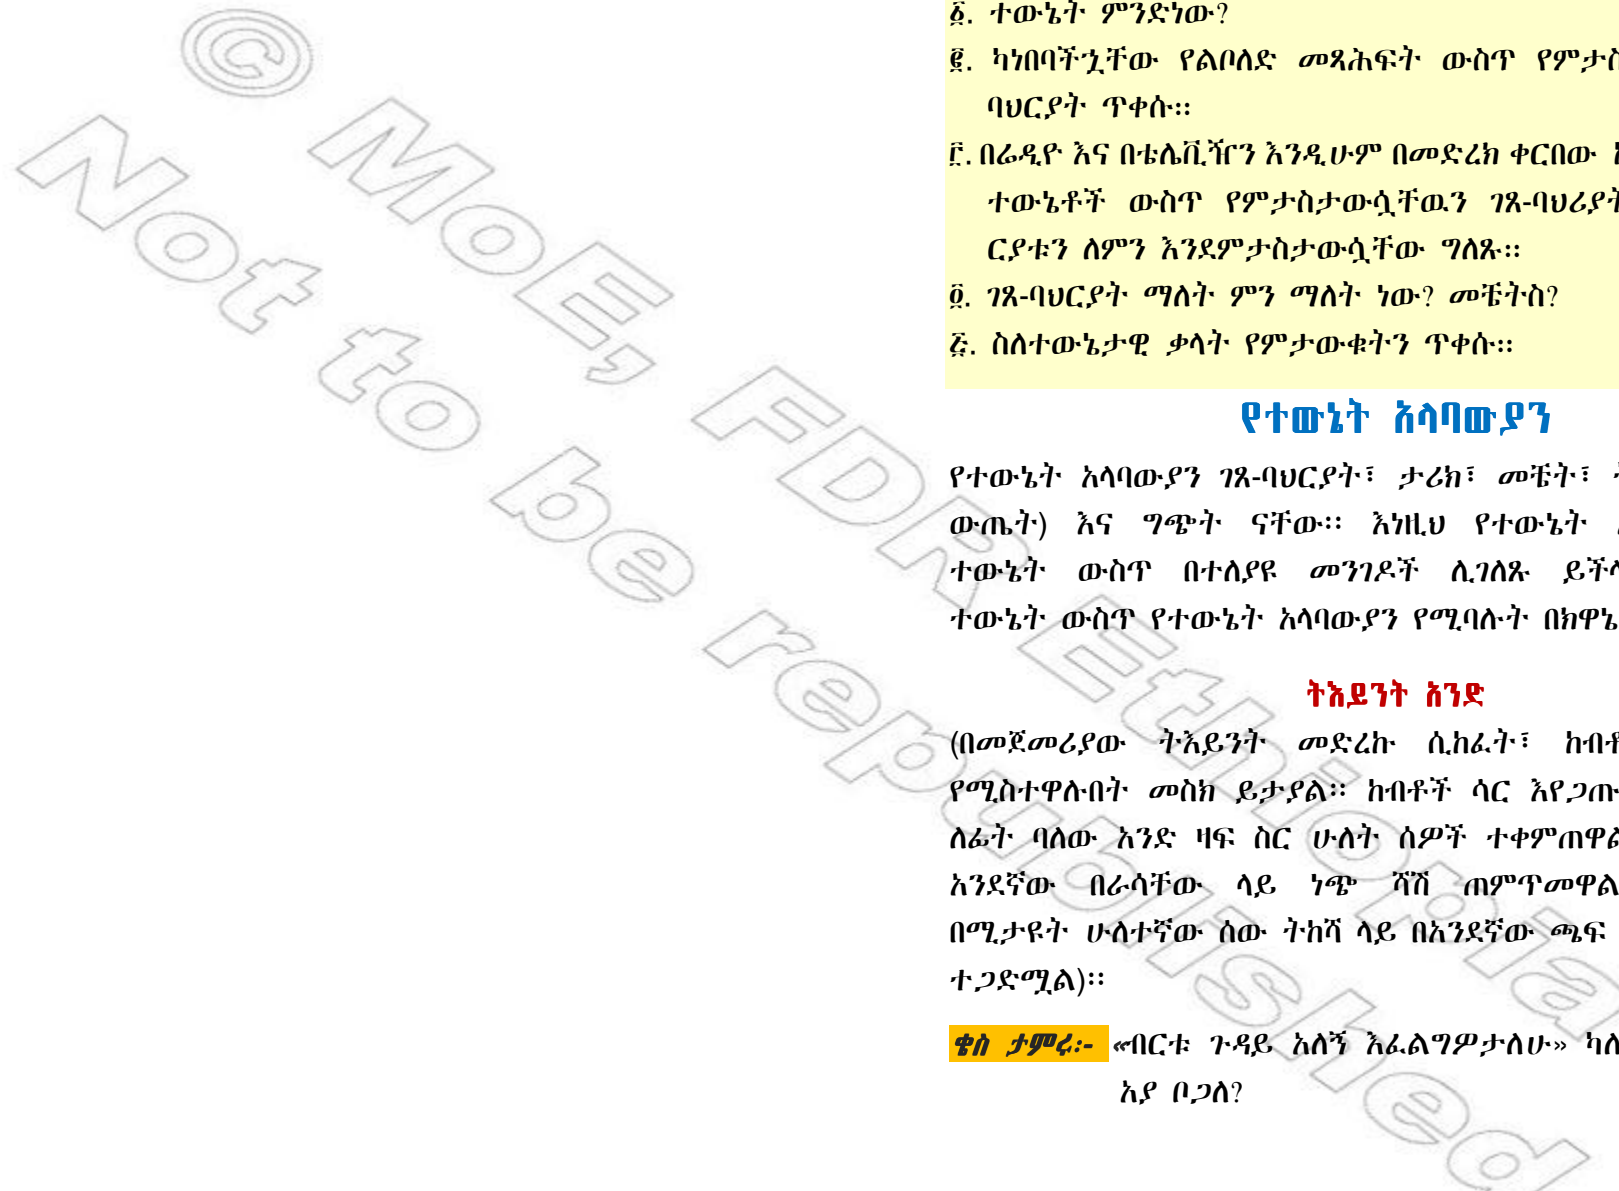 ፩. ተውኔት ምንድነው?
፪. ካነበባችኋቸው የልቦለድ መጻሕፍት ውስጥ የምታስ
ባህርያት ጥቀሱ፡፡
፫. በሬዲዮ እና በቴሌቪዥን እንዲሁም በመድረክ ቀርበው
ተውኔቶች ውስጥ የምታስታውሷቸዉን ገጸ-ባህሪያት
ርያቱን ለምን እንደምታስታውሷቸው ግለጹ፡፡
፬. ገጸ-ባህርያት ማለት ምን ማለት ነው? መቼትስ?
፭. ስለተውኔታዊ ቃላት የምታውቁትን ጥቀሱ፡፡
የተውኔት አላባውያን
የተውኔት አላባውያን ገጸ-ባህርያት፣ ታሪክ፣ መቼት፣
ውጤት) እና ግጭት ናቸው፡፡ እነዚህ የተውኔት
ተውኔት ውስጥ በተለያዩ መንገዶች ሊገለጹ ይችላ
ተውኔት ውስጥ የተውኔት አላባውያን የሚባሉት በክዋኔ
ትእይንት አንድ
(በመጀመሪያው ትእይንት መድረኩ ሲከፈት፣ ከብቶ
የሚስተዋሉበት መስክ ይታያል፡፡ ከብቶች ሳር እየጋጡ
ለፊት ባለው አንድ ዛፍ ስር ሁለት ሰዎች ተቀምጠዋል
አንደኛው በራሳቸው ላይ ነጭ ሻሽ ጠምጥመዋል
በሚታዩት ሁለተኛው ሰው ትከሻ ላይ በአንደኛው ጫፍ
ተጋድሟል)፡፡
ቄስ ታምሩ፡- «ብርቱ ጉዳይ አለኝ እፈልግዎታለሁ» ካለ
አያ ቦጋለ?
© MoE, FDR Ethiopia
Not to be republished